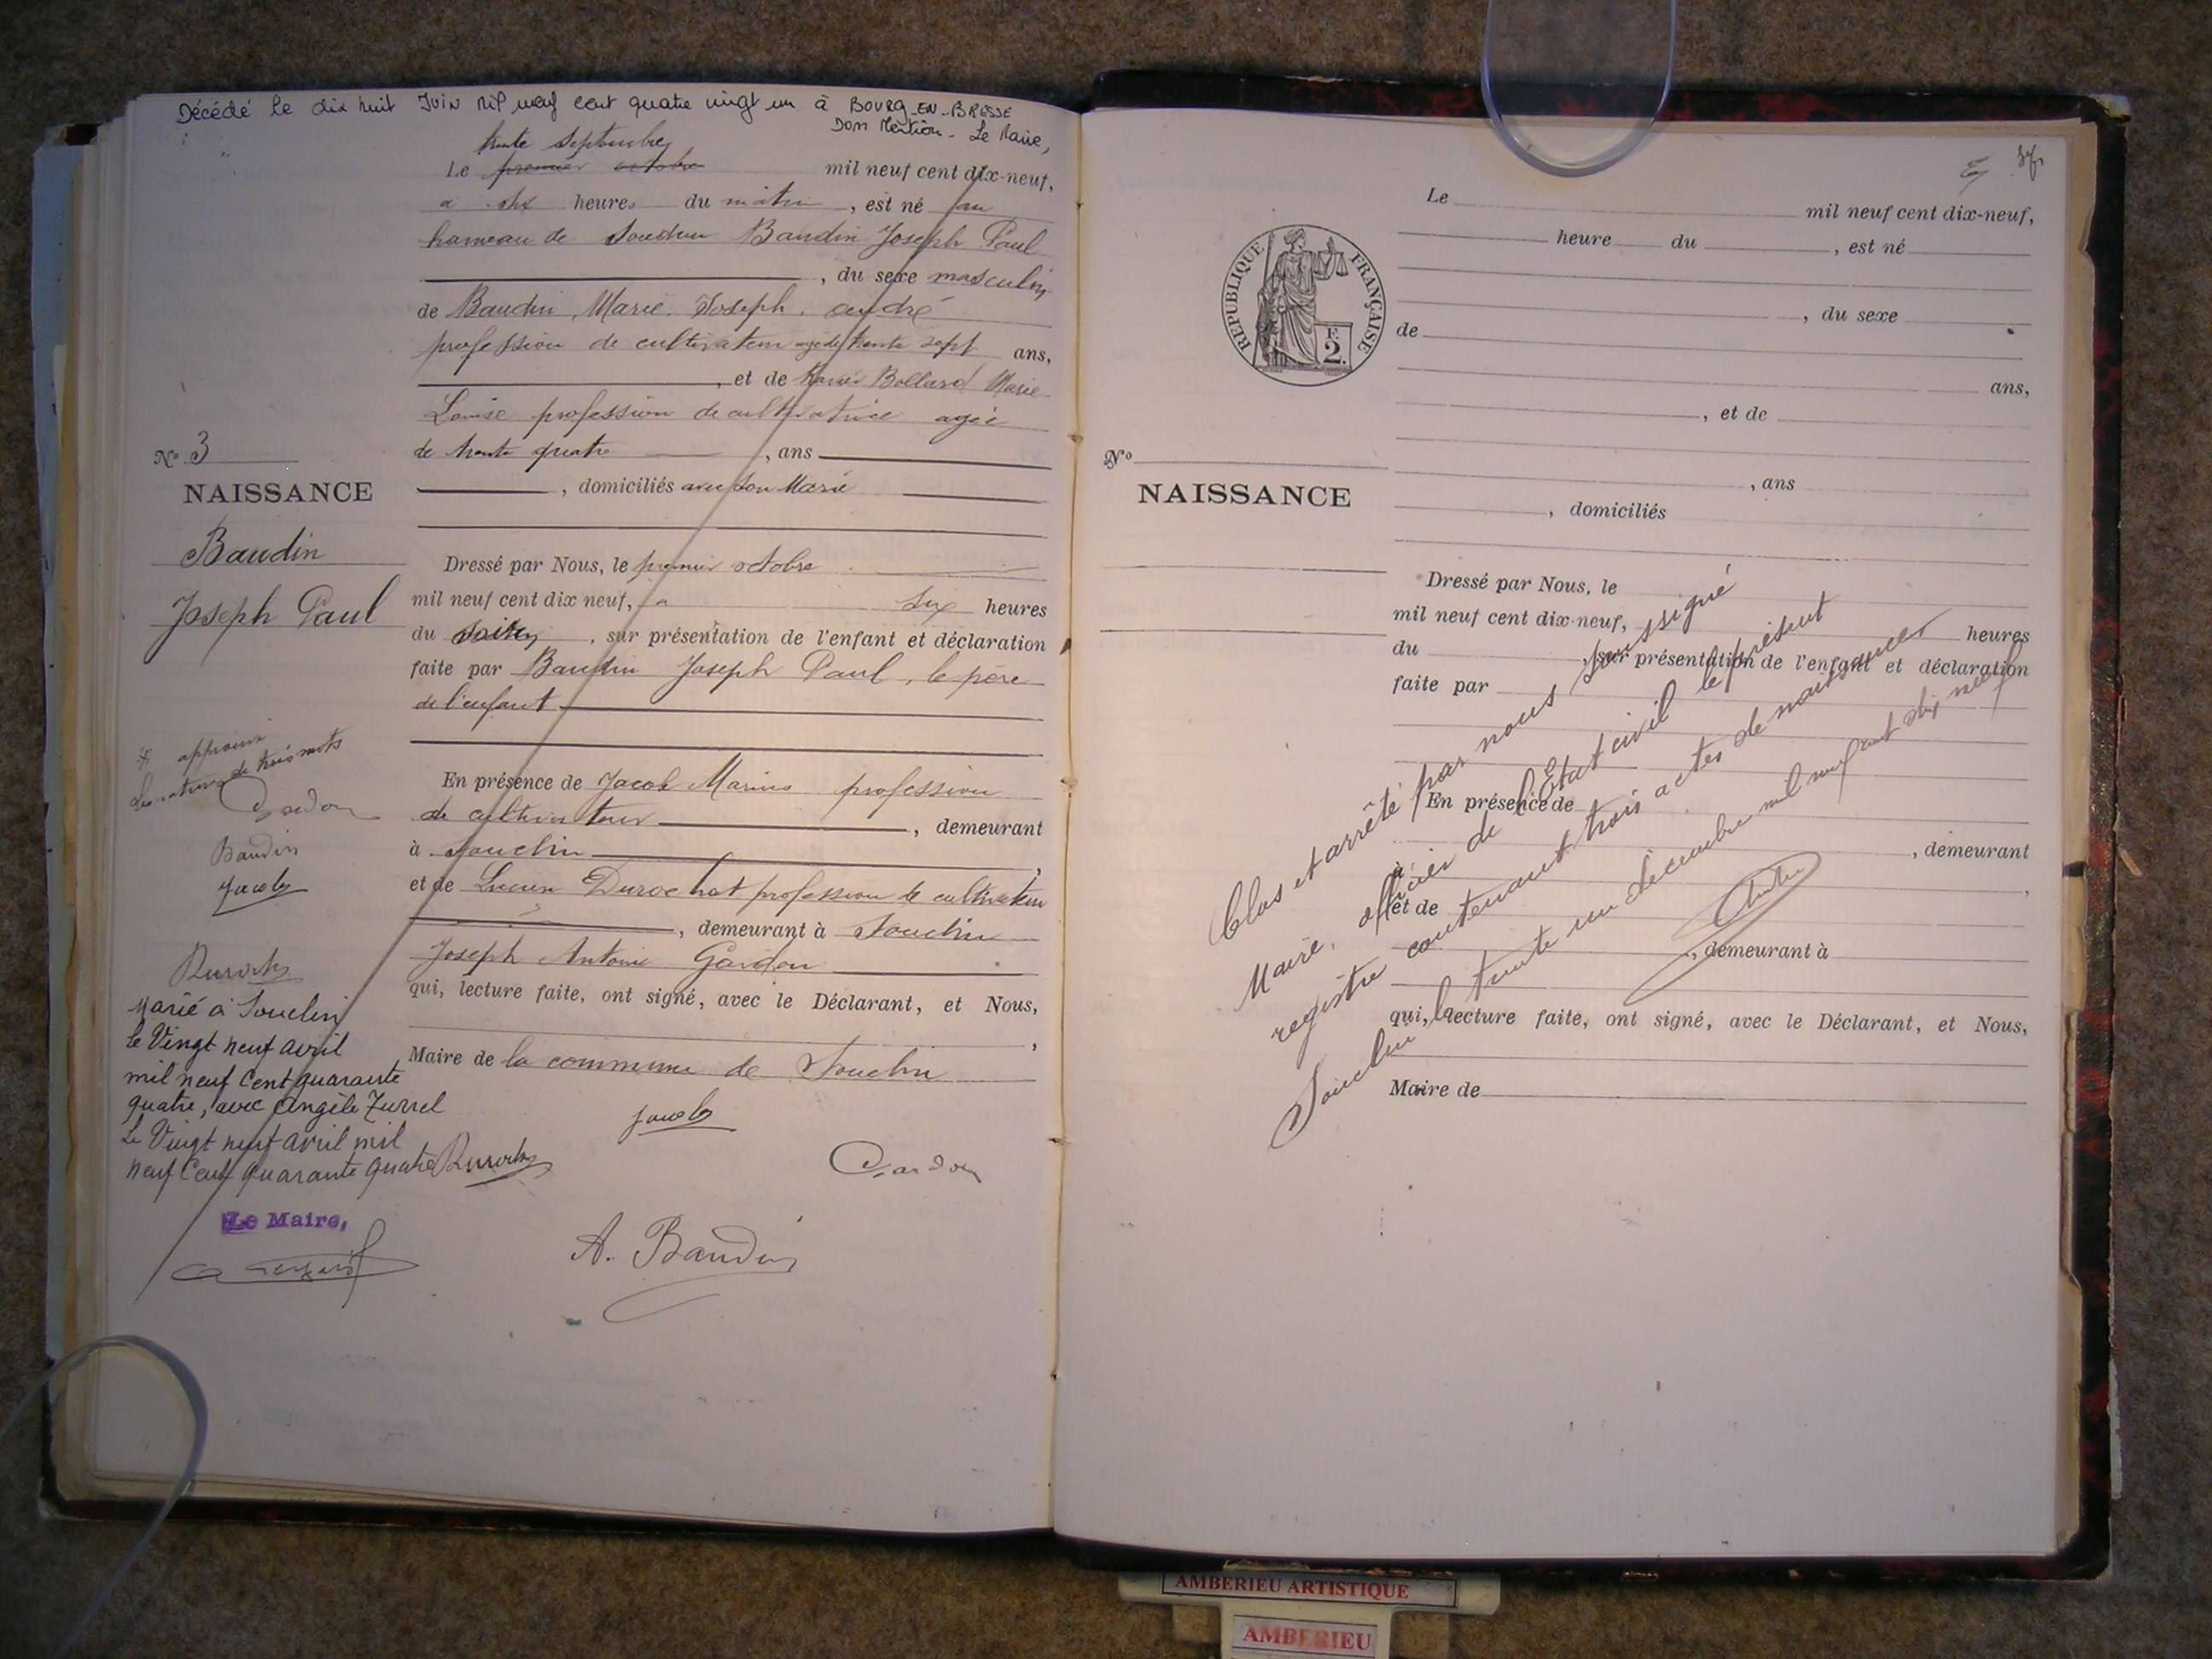 Décédé le dix huit Juin Mil neuf cent quatre vingt un à BOURG-EN-BRESSE
Dont Mention - Le Maire,
trente septembre
Le premier octobre mil neuf cent dix-neuf,
a six heures du matin, est né au
hameau de Souclin Baudin Joseph Paul
, du sexe masculin
de Baudin, Marie, Joseph, andré
profession de cultivateur agé de trente sept ans,
, et de Bollard Marie
Louise profession de cultivatrice agée
de trente quatre, ans
, domiciliés avec son Marie
Nº 3
NAISSANCE
Baudin
Joseph Paul
Dressé par Nous, le premier octobre
mil neuf cent dix neuf, a six heures
du soir, sur présentation de l'enfant et déclaration
faite par Baudin Joseph Paul, le père
de l'enfant
En présence de Jacob Marius profession
de cultivateur, demeurant
à Souclin,
et de Lucien Durochat profession de cultivateur
, demeurant à Souclin
Joseph Antoine Gardon
qui, lecture faite, ont signé, avec le Déclarant, et Nous,
,
Maire de la commune de Souclin
Jacob
Durochat
Gardon
A. Baudin
approuvé
de trois mots
Gardon
Baudin
Jacob
Durochat
Marié à Souclin
le Vingt neuf avril
mil neuf Cent quarante
quatre, avec Angèle Zurrel
Le Vingt neuf avril mil
neuf Cent quarante quatre
Le Maire,
37
Le mil neuf cent dix-neuf,
heure du, est né
, du sexe
de
ans,
, et de
, ans
, domiciliés
REPUBLIQUE FRANÇAISE
F.
2.
Nº
NAISSANCE
Dressé par Nous, le
mil neuf cent dix-neuf, heures
du, sur présentation de l'enfant et déclaration
faite par
En présence de
, demeurant
à,
et de
, demeurant à
qui, lecture faite, ont signé, avec le Déclarant, et Nous,
Maire de
Clos et arrêté par nous soussigné
Maire, officier de l'Etat civil le présent
registre contenant trois actes de naissances
Souclin, le trente un décembre mil neuf cent dix neuf
AMBERIEU ARTISTIQUE
AMBERIEU